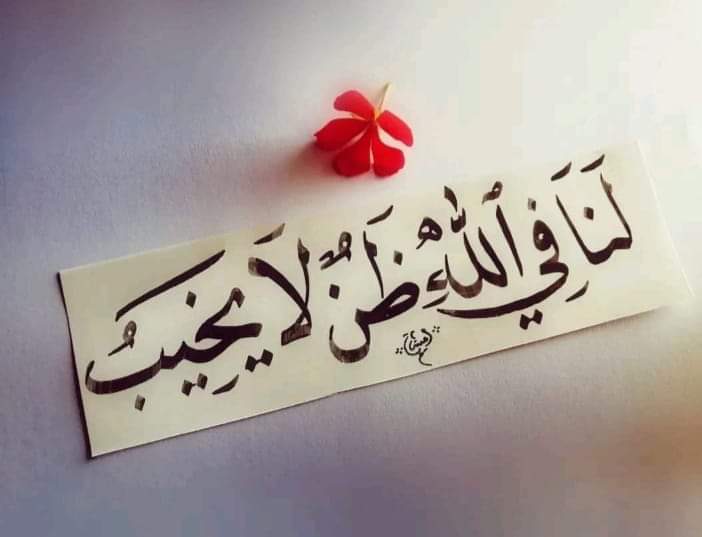 لَنَا فِي ٱللَّهِ ظَنٌّ لَا يَخِيبُ